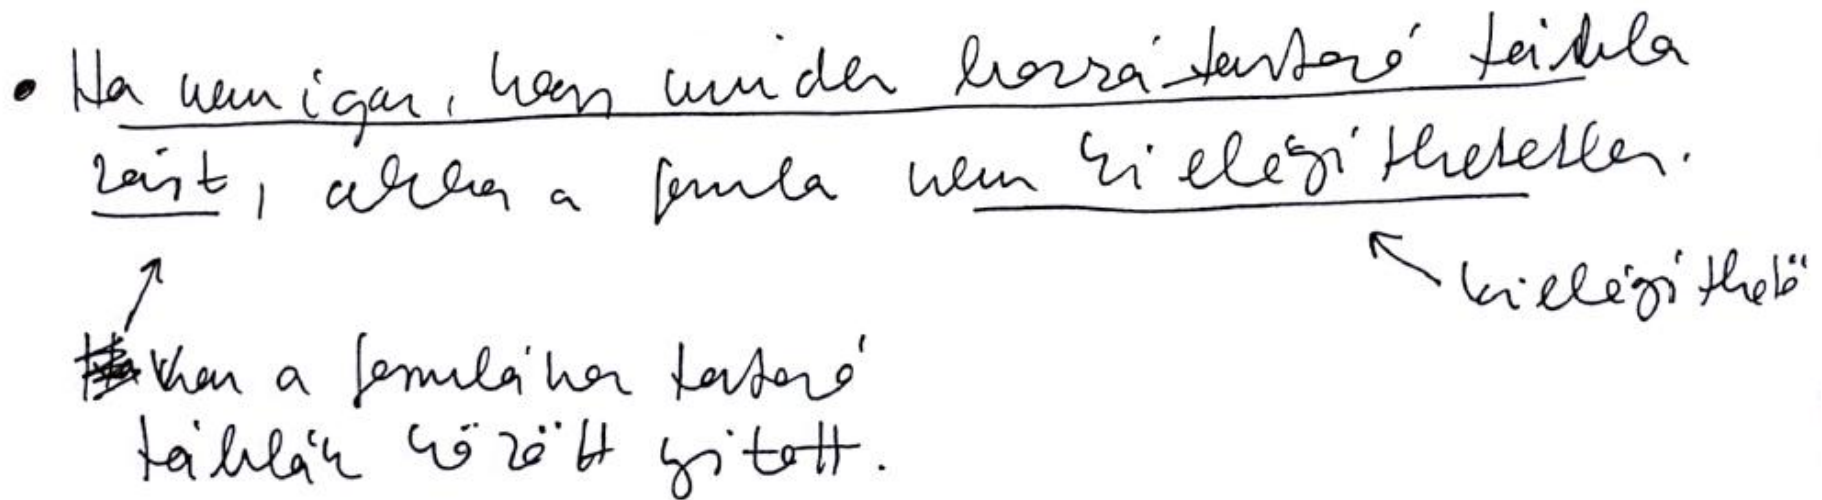 • Ha nem igaz, hogy minden hozzátartozó tábla
zárt, akkor a formula nem kielégíthetetlen.
kielégíthető
Van a formulához tartozó
táblák között nyitott.